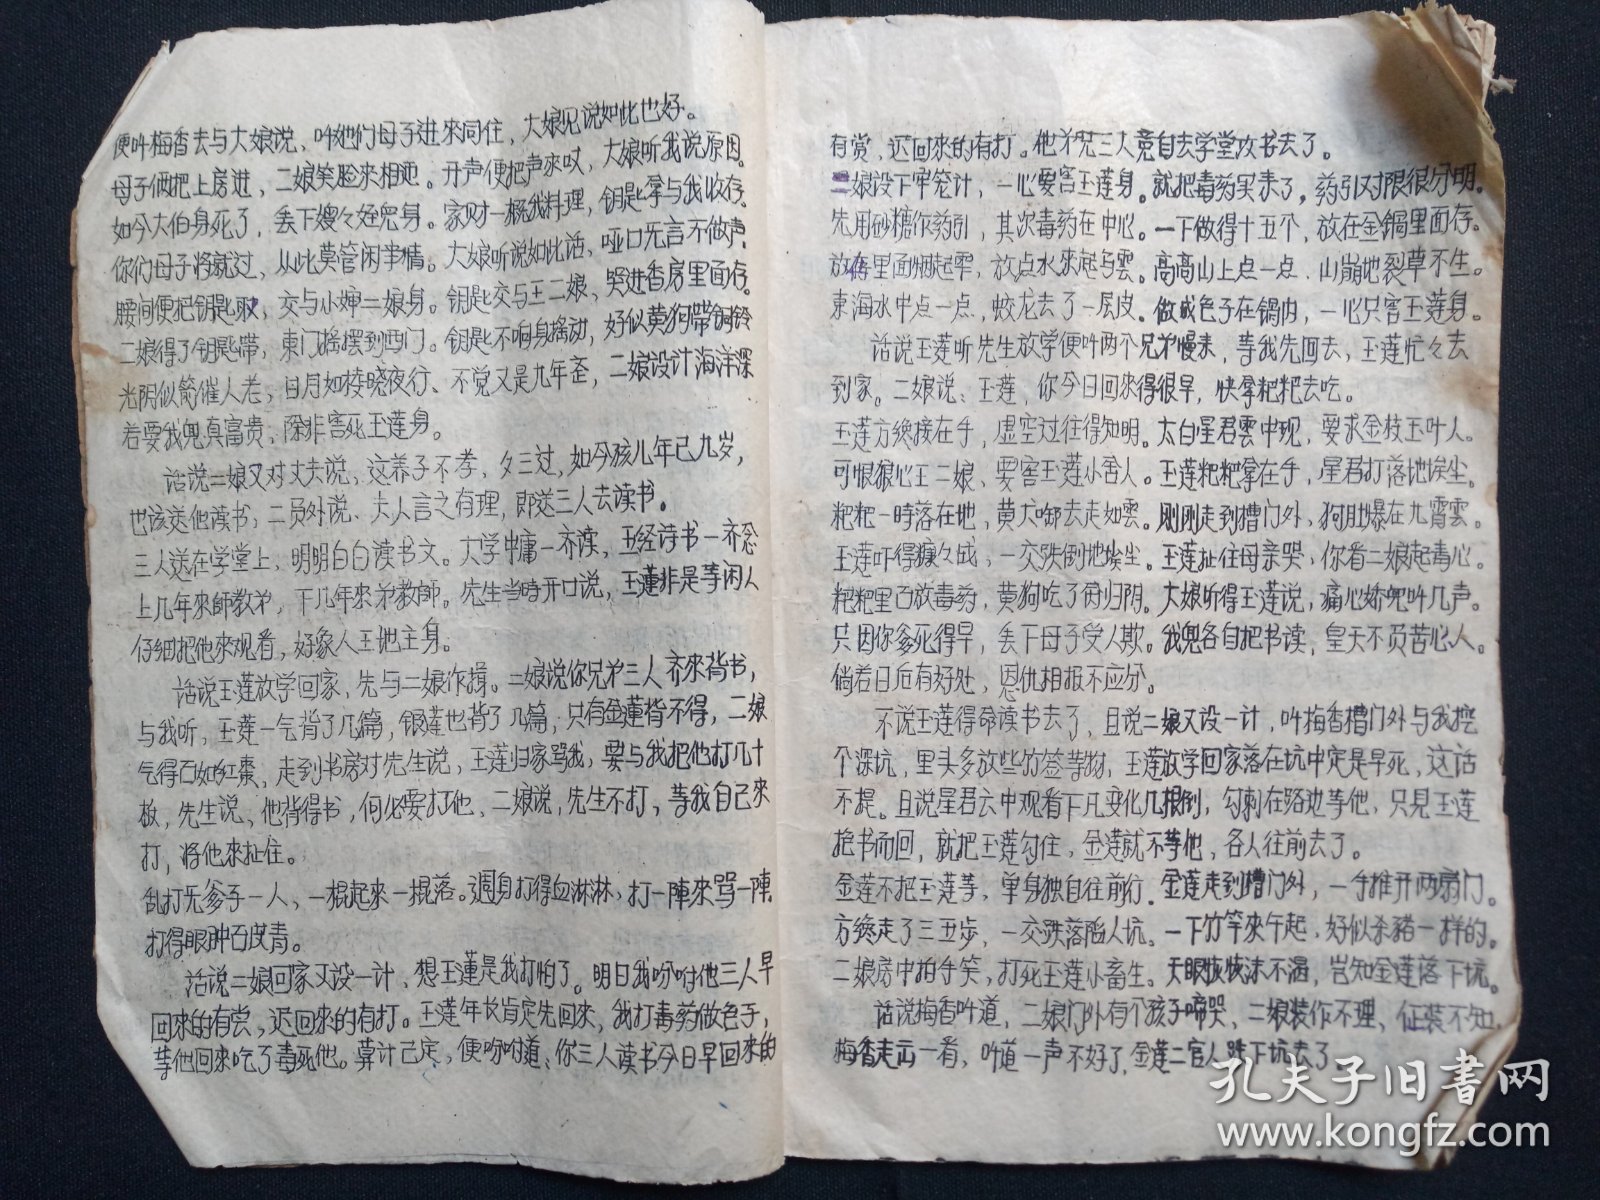 便叫梅香去与大娘说，叫她们母子进来同住，大娘见说如此也好。
母子俩把上房进，二娘笑脸来相迎。开声便把声来叹，大娘听我说原因。
如今大伯身死了，丢下嫂々姪児身。家财一概我料理，钥匙拿与我收存。
你们母子将就过，从此莫管闲事情。大娘听说如此话，哑口无言不做声。
腰间便把钥匙取，交与小婶二娘身。钥匙交与王二娘，哭进香房里面存。
二娘得了钥匙带，東门摇摆到西门。钥匙不响身摇动，好似黄狗带铜铃
光阴似箭催人老，日月如梭晓夜行、不觉又是九年歪，二娘设计海洋深
若要我児真富贵，除非害死玉莲身。
话说二娘又对丈夫说，这养子不孝，父之过，如今孩儿年已九岁，
也该送他读书，二员外说、夫人言之有理，即送三人去读书。
三人送在学堂上，明明白白读书文。大学中庸一齐读，五经诗书一齐念
上几年來師教弟，下几年來弟教師。先生当時开口说，玉蓮非是等闲人
仔细把他來观看，好象人王地主身。
话说玉莲放学回家，先与二娘作揖。二娘说你兄弟三人齐來背书，
与我听，玉莲一气背了几篇，银莲也背了几篇，只有金蓮背不得，二娘
气得面如红棗、走到书房对先生说，玉莲归家骂我，要与我把他打几十
板，先生说、他背得书，何必要打他、二娘说，先生不打，等我自己來
打，将他來扯住。
乱打无爹子一人，一棍起來一棍落。週身打得血淋淋，打一陣來骂一陣，
打得眼肿面皮青。
话说二娘回家又设一计、想玉蓮是我打怕了。明日我吩咐他三人早
回來的有赏，迟回來的有打。玉莲年长肯定先回來，我打毒药做包子，
等他回來吃了毒死他。算计已定，便吩咐道、你三人读书今日早回來的
有赏，迟回來的有打。他弟兄三人竟自去学堂攻书去了。
二娘设下牢笼计，一心要害玉莲身。就把毒药买来了，药引对限很分明。
先用砂糖作药引，其次毒药在中心。一下做得十五个，放在金锅里面存。
放在里面烟起雾，放点水來起乌雲。高高山上点一点，山崩地裂草不生。
東海水中点一点，蛟龙去了一层皮。做成包子在锅内，一心只害玉莲身。
话说玉莲听先生放学便叫两个兄弟慢来，等我先回去，玉莲忙々去
到家。二娘说：玉莲，你今日回來得很早，快拿粑粑去吃。
玉莲方纔接在手，虚空过往得知明。太白星君雲中现，要求金枝玉叶人。
可恨狠心王二娘、要害玉莲小舍人。玉莲粑粑拿在手，星君打落地埃尘。
粑粑一時落在地，黄犬啣去走如雲。刚刚走到槽门外，狗肚爆在九霄雲。
玉莲吓得慷々战，一交跌倒地埃尘。玉莲扯住母亲哭，你看二娘起毒心。
粑粑里面放毒药，黄狗吃了两归阴。大娘听得玉莲说，痛心娇児叫几声。
只因你爹死得早，丢下母子受人欺。我児各自把书读，皇天不负苦心人。
倘若日后有好处，恩仇相报不应分。
不说玉莲得命读书去了，且说二娘又设一计，叫梅香槽门外与我挖
个深坑，里头多放些竹签等物，玉莲放学回家落在坑中定是早死，这话
不提。且说星君云中观看下凡变化几根倒，勾刺在路边等他，只見玉莲
抱书而回，就把玉莲勾住，金莲就不等他，各人往前去了。
金莲不把玉莲等，单身独自往前行。金莲走到槽门外，一手推开两扇门。
方纔走了三五步，一交跌落陷人坑。一下竹竿來午起，好似杀豬一样的。
二娘房中拍手笑，打死玉莲小畜生。天眼恢恢沫不漏，岂知金莲落下坑。
话说梅香叫道，二娘门外有个孩子啼哭，二娘装作不理、佂装不知，
梅香走出一看，叫道一声不好了，金莲二官人跌下坑去了。
孔夫子旧書网
www.kongfz.com